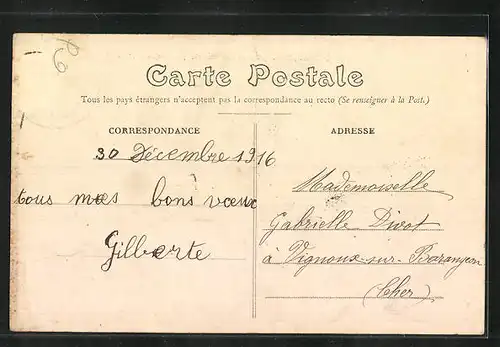 Carte Postale
Tous les pays étrangers n'acceptent pas la correspondance au recto (Se renseigner à la Poste.)
CORRESPONDANCE
ADRESSE
30 Décembre 1916
tous mes bons vœux
Gilberte
Mademoiselle
Gabrielle Divot
à Vignoux-sur-Barangeon
(Cher)